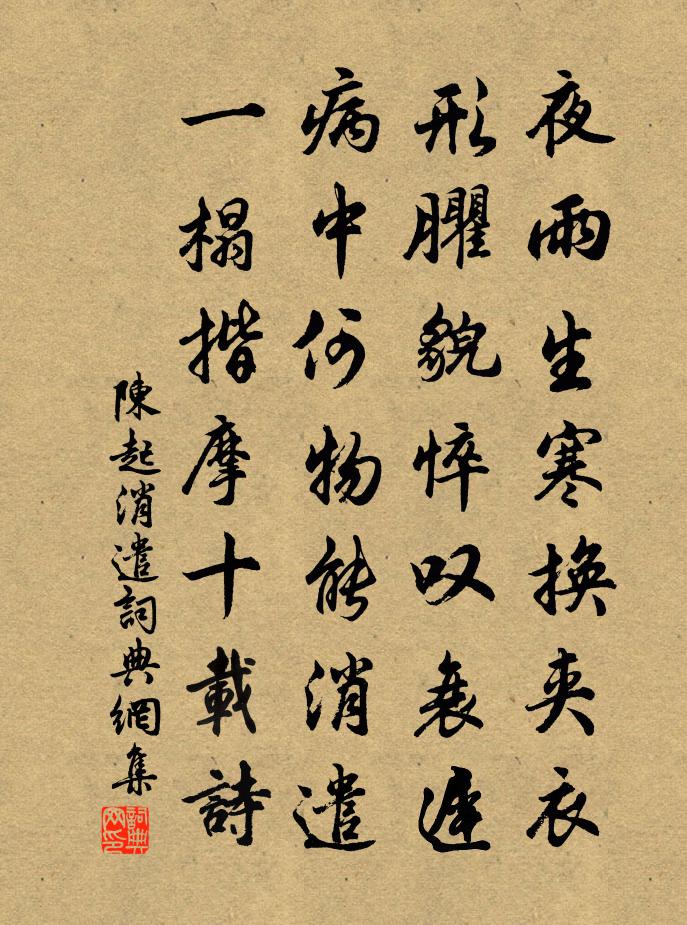 夜雨生寒換夹衣
形臞貌悴叹衰遅
病中何物能消遣
一榻揩摩十載詩
陳起消遣詞典網集
詞典網印